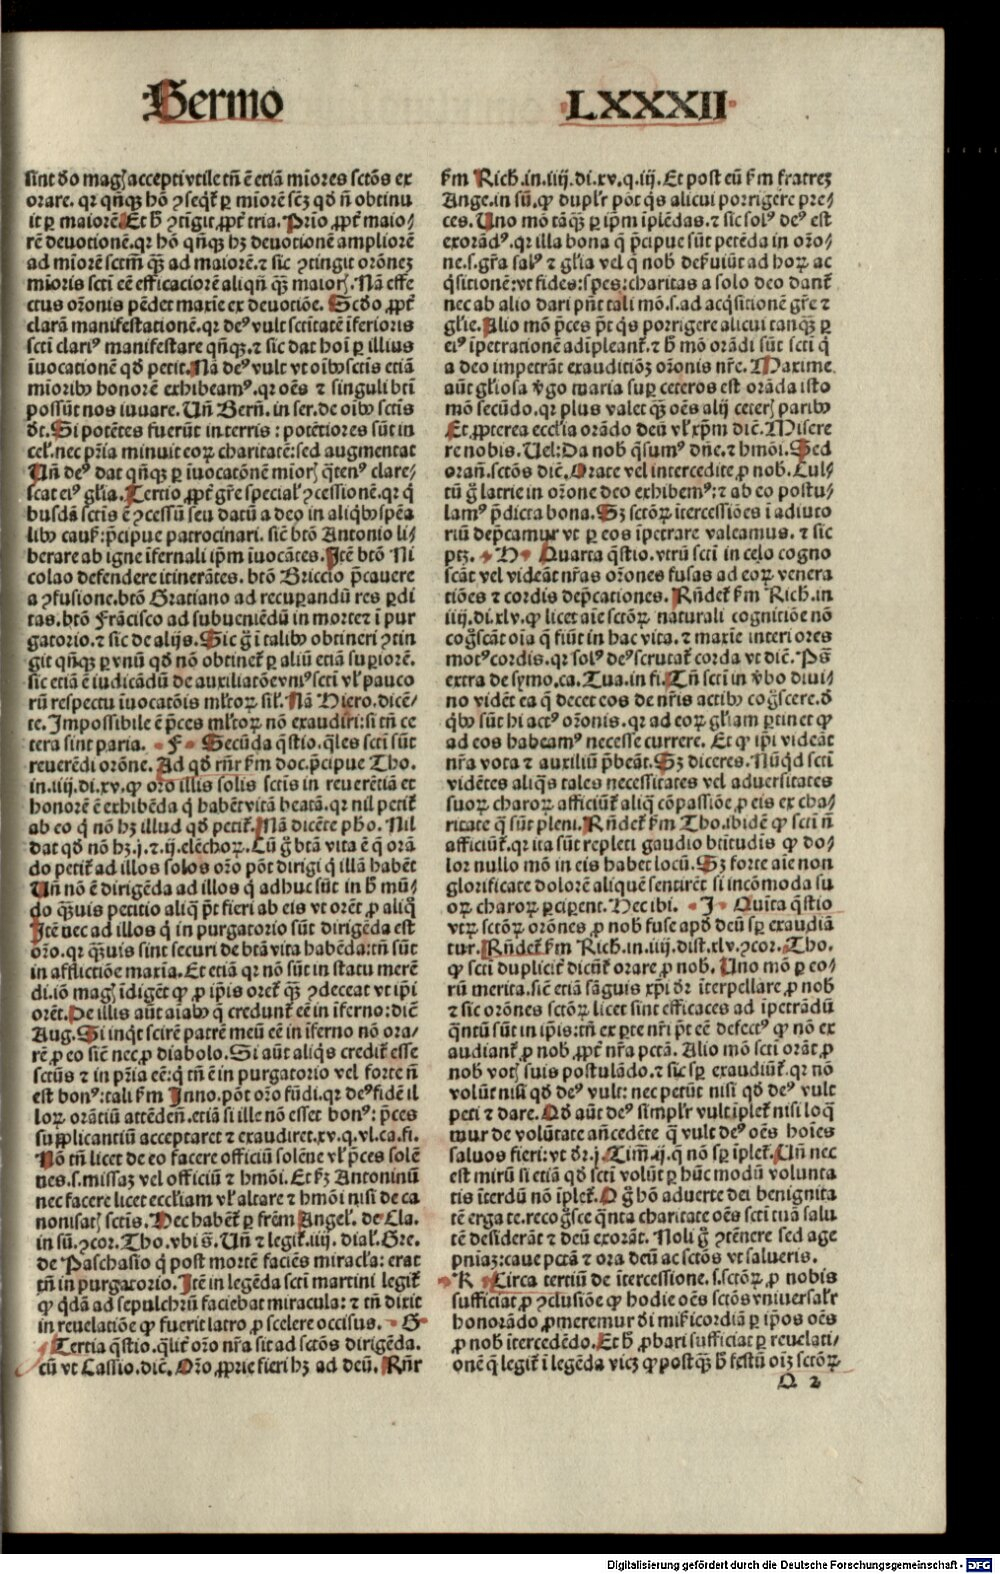 Sermo LXXXII
sint do magꝭ accepti vtile tñ ē etiā mīores sctōs ex
orare. qr qñqꝫ hō ꝯseqͥt̄ ꝑ miorē sc̄ꝫ qd ñ obtinu
it ꝑ maiorē. Et h̄ ꝯtigit ꝓpt̄ tria. Prīo ꝓpt̄ maio⸗
rē deuotionē. qr hō qñqꝫ hꝫ deuotionē ampliorē
ad mīorē sctm̄ qꝫ̄ ad maiorē. ⁊ sic ꝯtingit orōneꝫ
mīoris scti eē efficaciorē aliqñ qꝫ̄ maiorꝭ. Nā effe
ctus orōnis pēdet maxīe ex deuotiōe. Scdo ꝓpt̄
clarā manifestationē. qr deꝰ vult sctitatē īferioris
scti clariꝰ manifestare qñqꝫ. ⁊ sic dat hoī ꝑ illius
īuocationē qd petit. Nā deꝰ vult vt oībꝰ sctis etiā
mīoribꝰ honorē exhibeamꝰ. qr oēs ⁊ singuli bt̄i
possūt nos iuuare. Uñ Berñ. in ser. de oibꝰ sctis
dt̄. Si potētes fuerūt in terris : potētiores sūt in
cel̄. nec pr̄ia minuit eoꝝ charitatē: sed augmentat
Uñ deꝰ dat qñqꝫ ꝑ īuocatōnē mīorꝭ qͥtenꝰ clare⸗
scat eiꝰ gl̄ia. Tertio ꝓpt̄ gr̄e special̄ ꝯcessionē. qr q̄
busdā sctis ē ꝯcessū seu datū a deo in aliqͥbꝰ spēa
libꝰ cauẜ p̄cipue patrocinari. sic̄ btō Antonio li⸗
berare ab igne īfernali ip̄m īuocātes. Itē btō Ni
colao defendere itinerātes. btō Briccio p̄cauere
a ꝯfusione. btō Gratiano ad recuꝑandū res ꝑdi
tas. btō Frācisco ad subueniēdū in mortez ī pur
gatorio. ⁊ sic de alijs. Sic ḡ ī talibꝰ obtineri ꝯtin
git qñqꝫ ꝑ vnū qd nō obtinet̄ ꝑ aliū etiā suꝑiorē.
sic etiā ē iudicādū de auxiliatōe vniꝰ scti vl̄ pauco
rū respectu īuocatōis ml̄toꝝ sil̄. Nā Hiero. dicē⸗
te. Impossibile ē p̄ces ml̄toꝝ nō exaudiri: si tñ ce
tera sint paria. F Secūda q̄stio. q̄les scti sūt
reuerēdi orōne. Ad qd rñr s̄m doc. p̄cipue Tho.
in. iiij. di. xv. ꝙ orō illis solis sctis in reuerētiā et
honorē ē exhibēda q̄ habēt vitā beatā. qr nil petit̄
ab eo q̄ nō hꝫ illud qd petit̄. Nā dicēte pho. Nil
dat qd nō hꝫ. j. ⁊. ij. elēchoꝝ. Cū ḡ btā vita ē q̄ orā
do petit̄ ad illos solos orō pōt dirigi q̄ illā habēt
Uñ nō ē dirigēda ad illos q̄ adhuc sūt in h̄ mū⸗
do qꝫ̄uis petitio aliq̄ p̄t fieri ab eis vt orēt ꝓ aliq̄
Itē nec ad illos q̄ in purgatorio sūt dirigēda est
orō. qr qꝫ̄uis sint securi de btā vita habēda: tñ sūt
in afflictiōe maxīa. Et etiā qr nō sūt in statu merē
di. iō magꝭ īdigēt ꝙ ꝓ ip̄is oret̄ qꝫ̄ ꝯdeceat vt ip̄i
orēt. De illis aūt aīabꝰ q̄ credunt̄ eē in īferno: dic̄
Aug. Si inqͥt scirē patrē meū eē in īferno nō ora⸗
rē ꝓ eo sic̄ nec ꝓ diabolo. Si aūt aliqͥs credit̄ esse
sctūs ⁊ in pr̄ia eē: q̄ tñ ē in purgatorio vel forte ñ
est bonꝰ: tali s̄m Inno. pōt orō fūdi. qr deꝰ fidē il
loꝝ orātiū attēdeñ. etiā si ille nō esset bonꝰ: p̄ces
supplicantiū acceptaret ⁊ exaudiret. xv. q. vl. ca. fi.
Nō tñ licet de eo facere officiū solēne vl̄ p̄ces solē
nes. s. missaꝫ vel officiū ⁊ hmōi. Et s̄ꝫ Antoninū
nec facere licet eccl̄iam vl̄ altare ⁊ hmōi nisi de ca
nonisatꝭ sctis. Hec habēt̄ ꝑ frēm Angel̄. de Cla.
in sū. ꝯcor. Tho. vbi s̄. Uñ ⁊ legit̄. iiij. dial̄. Gre.
de Paschasio q̄ post mortē faciēs miracl̄a: erat
tñ in purgatorio. Itē in legēda scti martini legit̄
ꝙ q̄dā ad sepulchrū faciebat miracula: ⁊ tñ dixit
in reuelatiōe ꝙ fuerit latro ꝓ scelere occisus. G
Tertia q̄stio. q̄lit̄ orō nr̄a sit ad sctōs dirigēda.
cū vt Cassio. dic̄. Orō ꝓprie fieri hꝫ ad deū. Rñr
s̄m Rich. in. iiij. di. xv. q. iij. Et post eū s̄m fratreꝫ
Ange. in sū. ꝙ duplr̄ pōt qͥs alicui porrigere pre⸗
ces. Uno mō tāqꝫ̄ ꝑ ip̄m īplēdas. ⁊ sic solꝰ deꝰ est
exorādꝰ. qr illa bona q̄ p̄cipue sūt petēda in orō⸗
ne. s. gr̄a salꝰ ⁊ gl̄ia vel q̄ nob̄ deẜuiūt ad hoꝝ ac
q̄sitionē: vt fides: spes: charitas a solo deo dant̄
nec ab alio dari pn̄t tali mō. s. ad acq̄sitionē gr̄e ⁊
gl̄ie. Alio mō p̄ces p̄t qͥs porrigere alicui tanqꝫ̄ ꝑ
eiꝰ īpetrationē adīpleant̄. ⁊ h̄ mō orādi sūt scti q̄
a deo impetrāt exauditiōꝫ orōnis nr̄e. Maxime
aūt gl̄iosa v̄go maria suꝑ ceteros est orāda isto
mō secūdo. qr plus valet qꝫ̄ oēs alij ceterꝭ paribꝰ
Et ꝓpterea eccl̄ia orādo deū vl̄ xp̄m dic̄. Misere
re nobis. Uel: Da nob̄ q̄sumꝰ dn̄e. ⁊ hmōi. Sed
orañ. sctōs dic̄. Orate vel intercedite ꝓ nob̄. Cul⸗
tū ḡ latrie in orōne deo exhibemꝰ: ⁊ ab eo postu⸗
lamꝰ p̄dicta bona. Sꝫ sctoꝝ ītercessiōes ī adiuto
riū dep̄camur vt ꝑ eos īpetrare valeamus. ⁊ sic
ptꝫ. H Quarta q̄stio. vtrū scti in celo cogno
scāt vel videāt nr̄as orōnes fusas ad eoꝝ venera
tiōes ⁊ cordis dep̄cationes. Rñdet̄ s̄m Rich. in
iiij. di. xlv. ꝙ licet aīe sctoꝝ naturali cognitiōe nō
cog̊scāt oīa q̄ fiūt in hac vita. ⁊ maxīe interiores
motꝰ cordis. qr solꝰ deꝰ scrutat̄ corda vt dic̄. Ps̄
extra de symo. ca. Tua. in fi. Tñ scti in v̄bo diui/
no vidēt ea q̄ decet eos de nr̄is actibꝰ cog̊scere. d̄
qͥbꝰ sūt hi actꝰ orōnis. qr ad eoꝝ gl̄iam ꝑtinet ꝙ
ad eos habeamꝰ necesse currere. Et ꝙ ip̄i videāt
nr̄a vota ⁊ auxiliū p̄beāt. Sꝫ diceres. Nūqͥd scti
vidētes aliqͥs tales necessitates vel aduersitates
suoꝝ charoꝝ afficiūt̄ aliq̄ cōpassiōe ꝓ eis ex cha⸗
ritate q̄ sūt pleni. Rñdet̄ s̄m Tho. ibidē ꝙ scti ñ
afficiūt̄. qr ita sūt repleti gaudio btitudis ꝙ do⸗
lor nullo mō in eis habet locū. Sꝫ forte aīe non
glorificate dolorē aliquē sentirēt si incōmoda su
oꝝ charoꝝ ꝑciperent. Hec ibi. J Quīta q̄stio
vtꝝ sctoꝝ orōnes ꝓ nob̄ fuse apd̄ deū sp̄ exaudiā
tur. Rñdet̄ s̄m Rich. in. iiij. dist. xlv. ꝯcor. Tho.
ꝙ scti duplicit̄ dicūt̄ orare ꝓ nob̄. Uno mō ꝑ eo⸗
rū merita. sic̄ etiā sāguis xp̄i dr̄ īterpellare ꝓ nob̄
⁊ sic orōnes sctoꝝ licet sint efficaces ad īpetrādū
qͣntū sūt in ip̄is: tñ ex ꝑte nr̄i p̄t eē defectꝰ ꝙ nō ex
audiant̄ ꝓ nob̄ ꝓpt̄ nr̄a pctā. Alio mō scti orāt ꝓ
nob̄ votꝭ suis postulādo. ⁊ sic sp̄ exaudiūt̄. qr nō
volūt nisi qd deꝰ vult: nec petūt nisi qd deꝰ vult
peti ⁊ dare. Qd aūt deꝰ simplr̄ vult īplet̄ nisi loq̄
mur de volūtate añcedēte q̄ vult deꝰ oēs hoīes
saluos fieri: vt dr̄. j. Tim̄. ij. q̄ nō sp̄ īplet̄. Uñ nec
est mirū si etiā qd scti volūt ꝑ hūc modū volunta
tis īterdū nō īplet̄. O ḡ hō aduerte dei benignita
tē erga te. recog̊sce qͣnta charitate oēs scti tuā salu
tē desiderāt ⁊ deū exorāt. Noli ḡ ꝯtēnere sed age
pniaꝫ: caue pctā ⁊ ora deū ac sctōs vt salueris.
K Circa tertiū de ītercessione. s. sctoꝝ ꝓ nobis
sufficiat ꝓ ꝯclusiōe ꝙ hodie oēs sctōs vniuersalr̄
honorādo ꝓmeremur di mīẜicordiā ꝑ ip̄os oēs
ꝓ nob̄ ītercedēdo. Et h̄ ꝓbari sufficiat ꝑ reuelati⸗
onē q̄ legit̄ ī legēda vicꝫ ꝙ postqꝫ̄ h̄ festū oīꝫ sctoꝝ
Q 2
Digitalisierung gefördert durch die Deutsche Forschungsgemeinschaft - DFG